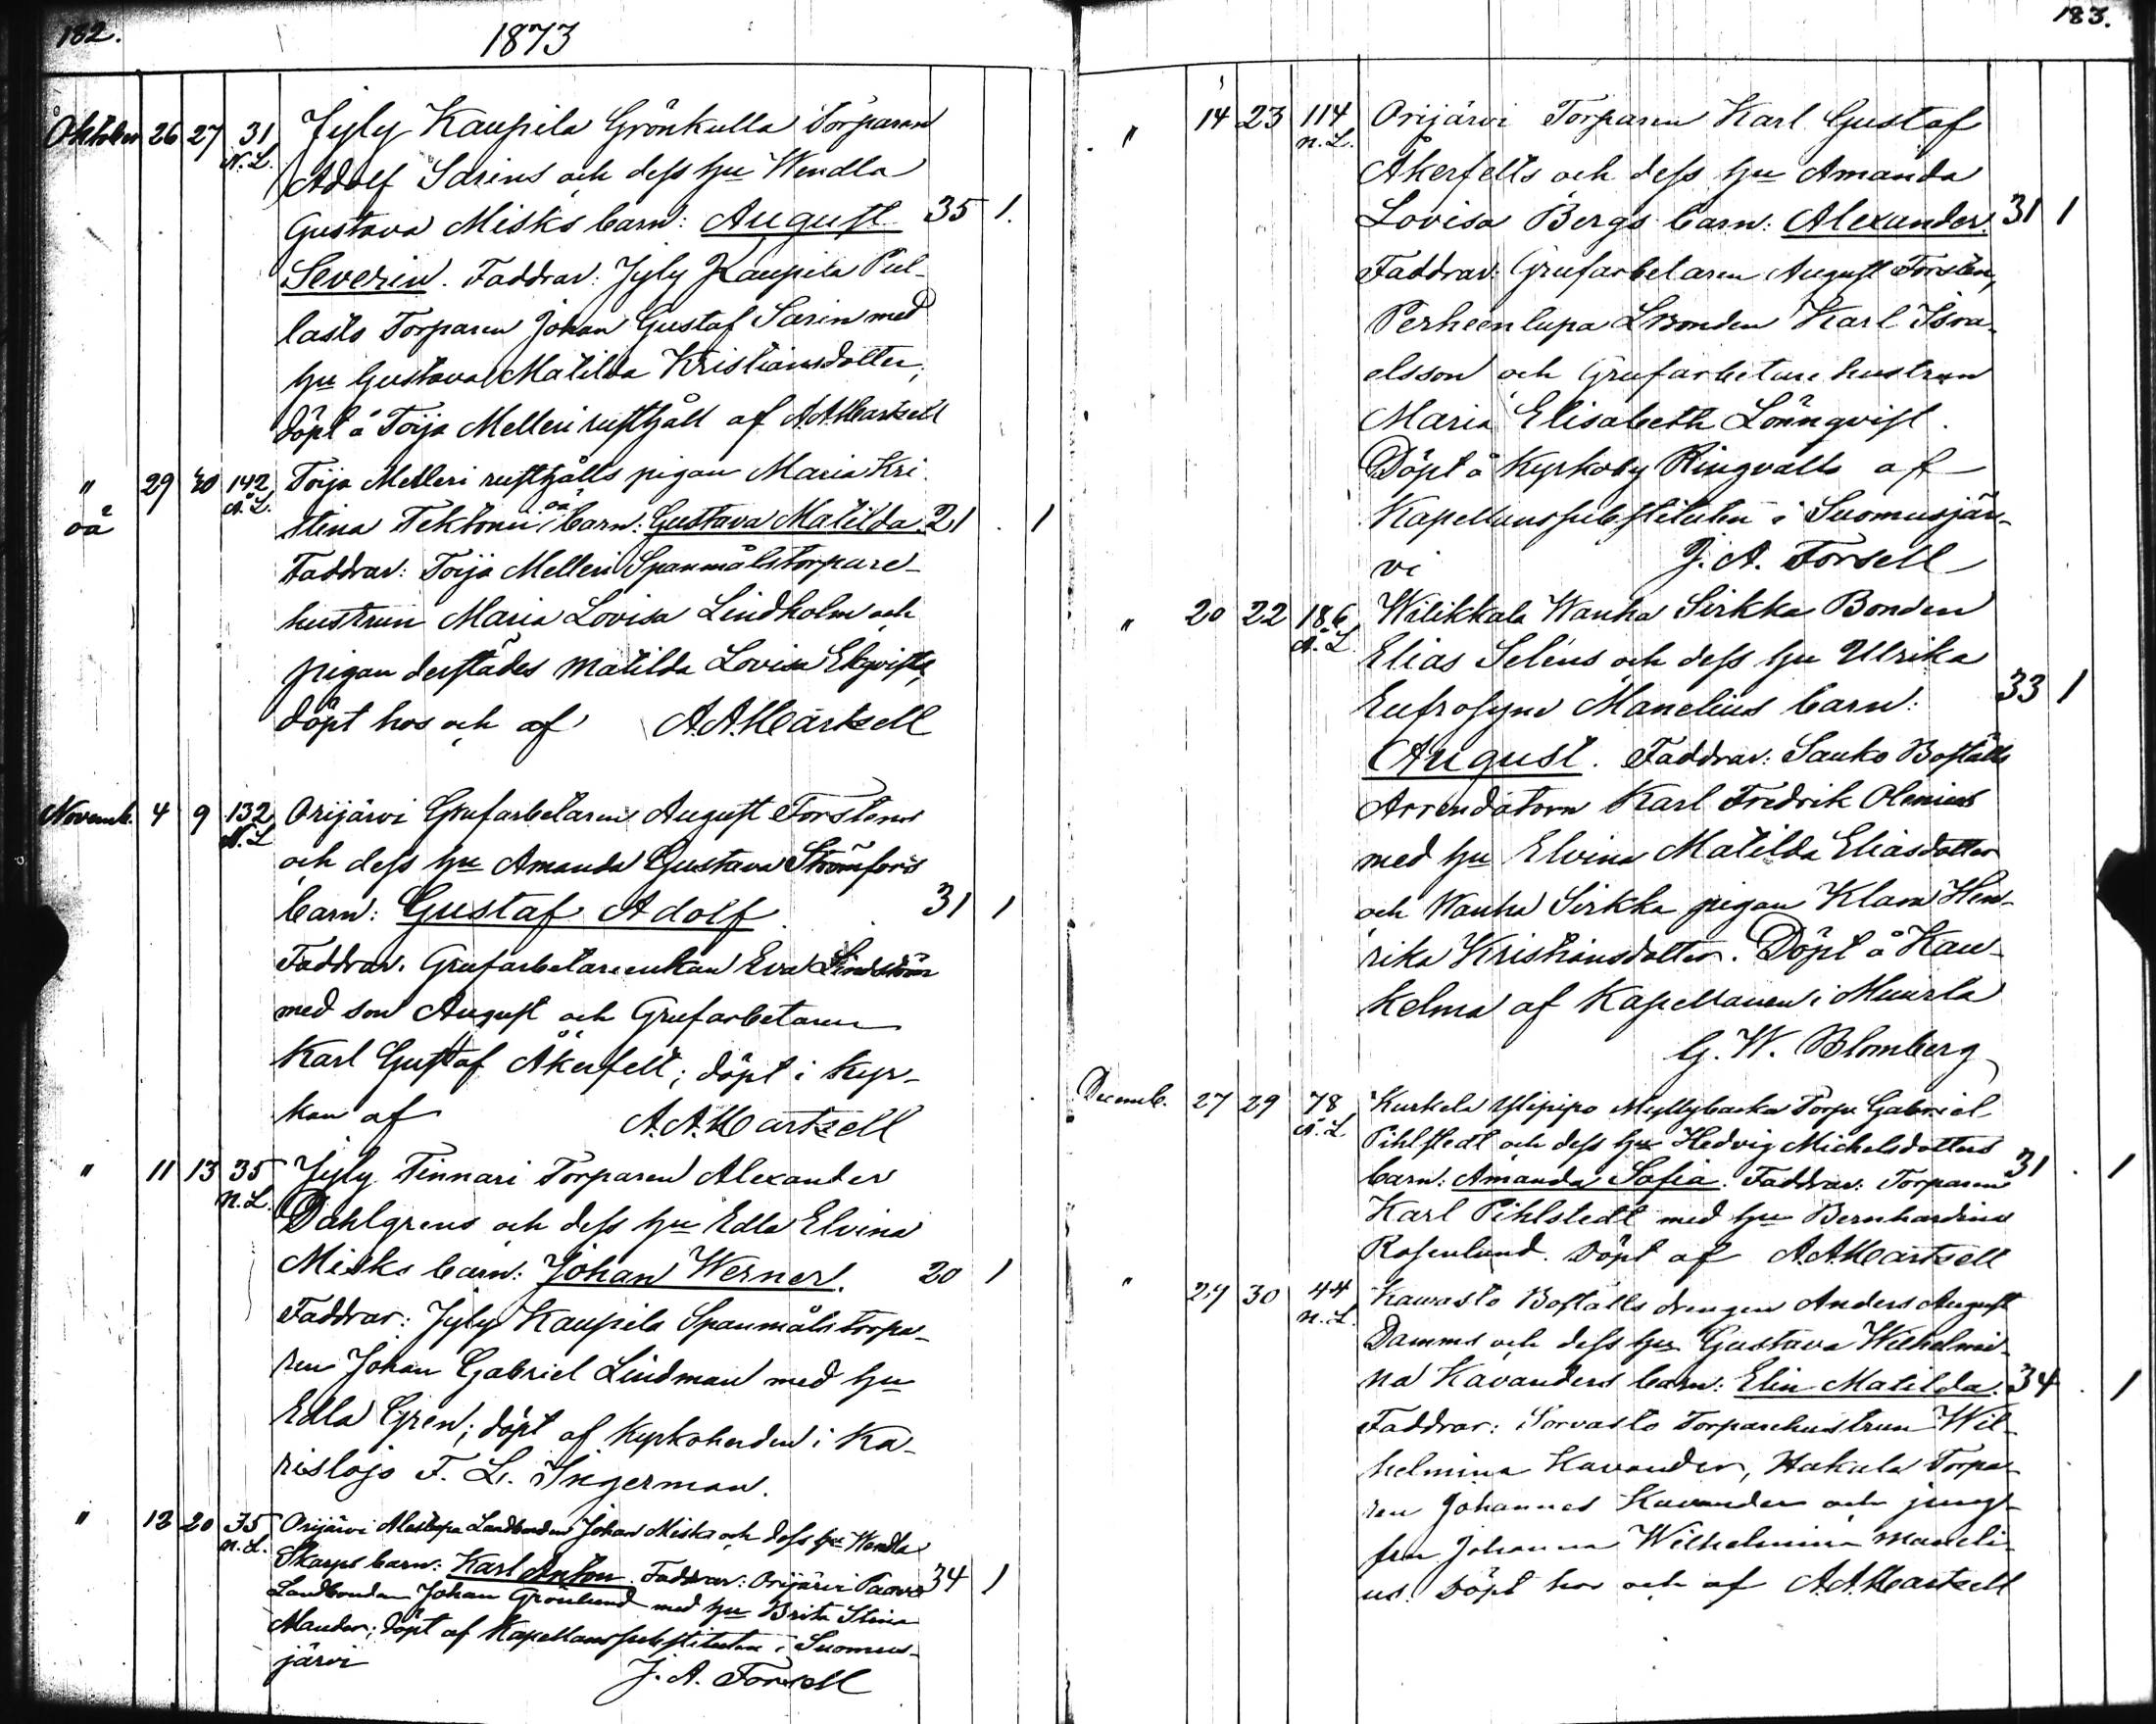 182.
1873
Oktober 26 27 31 Jyly Kaupila Grönkulla Torparen
N.L. Adolf Sarins och dess hu Wendla
Gustava Misks barn: August 35 1.
Severin. Faddrar: Jyly Kaupila Pul-
lasto Torparen Johan Gustaf Sarin med
hu Gustava Matilda Kristiansdotter;
döpt å Toija Melleri rusthåll af A.A. Hartzell
" 29 30 142 Toija Melleri rusthålls pigan Maria Kri-
oä N.L. stina Tektonii oä barn: Gustava Matilda. 21 1
Faddrar: Toija Melleri Spanmålstorpare-
hustrun Maria Lovisa Lindholm och
pigan derstädes Matilda Lovisa Ekqvist,
döpt hos och af A.A. Hartzell
Novemb. 4 9 132 Orijärvi Grufarbetaren August Forstens
N.L. och dess hu Amanda Gustava Strömfors
barn: Gustaf Adolf. 31 1
Faddrar. Grufarbetareenkan Eva Lindström
med son August och Grufarbetaren
Karl Gustaf Åkerfelt; döpt i Kyr-
kan af A.A. Hartzell
" 11 13 35 Jyly Tinnari Torparen Alexander
N.L. Dahlgrens och dess hu Edla Elvina
Misks barn: Johan Werner. 20 1
Faddrar: Jyly Kaupila Spanmålstorpa-
ren Johan Gabriel Lindman med hu
Edla Gren; döpt af Kyrkoherden i Ka-
rislojo F. L. Ingerman.
" 12 20 35 Orijärvi Alastupa Landbonden Johan Misks och dess hu Wendla
N.L. Skarps barn: Karl Anton. Faddrar: Orijärvi Paavo 34 1
Landbonden Johan Grönlund med hu Brita Stina
Mander; döpt af Kapellanssubstituten i Suomus-
järvi J. A. Forsell
183.
" 14 23 114 Orijärvi Torparen Karl Gustaf
N.L. Åkerfelts och dess hu Amanda
Lovisa Bergs barn: Alexander. 31 1
Faddrar: Grufarbetaren August Forsten,
Perheentupa LBonden Karl Isra-
elsson och Grufarbetare hustrun
Maria Elisabeth Lönnqvist.
Döpt å Kyrkoby Ringvalls af
Kapellanssubstituten i Suomusjär-
vi J. A. Forsell
" 20 22 186 Wilikkala Wanha Sirkka Bonden
N.L. Elias Seléns och dess hu Ulrika
Eufrosyne Manelius barn: 33 1
August. Faddrar: Sauko Boställs
Arrendatorn Karl Fredrik Olenius
med hu Elvina Matilda Eliasdotter
och Wanha Sirkka pigan Klara Hen-
rika Kristiansdotter. Döpt å Kau-
kelma af Kapellanen i Muurla
G. W. Blomberg
Decemb. 27 29 78 Kurkela Ylipipo Myllybacka Torp. Gabriel
N.L. Pihlstedt och dess hu Hedvig Michelsdotters
barn: Amanda Sofia. Faddrar: Torparen 31 1
Karl Pihlstedt med hu Bernhardina
Rosenlund. Döpt af A.A. Hartzell
" 29 30 44 Kavasto Boställs drengen Anders August
N.L. Damms och dess hu Gustava Wilhelmi-
na Kavanders barn: Elin Matilda. 34 1
Faddrar: Sorvasto Torparehustrun Wil-
helmina Kavander, Hakala Torpa-
ren Johannes Kavander och jung-
frun Johanna Wilhelmina Maneli-
us. Döpt hos och af A.A. Hartzell